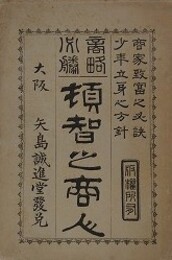 商家致富之必訣
少年立身之方針
商略
必勝
頓智之商人
版權所有
大阪 矢島誠進堂發兌